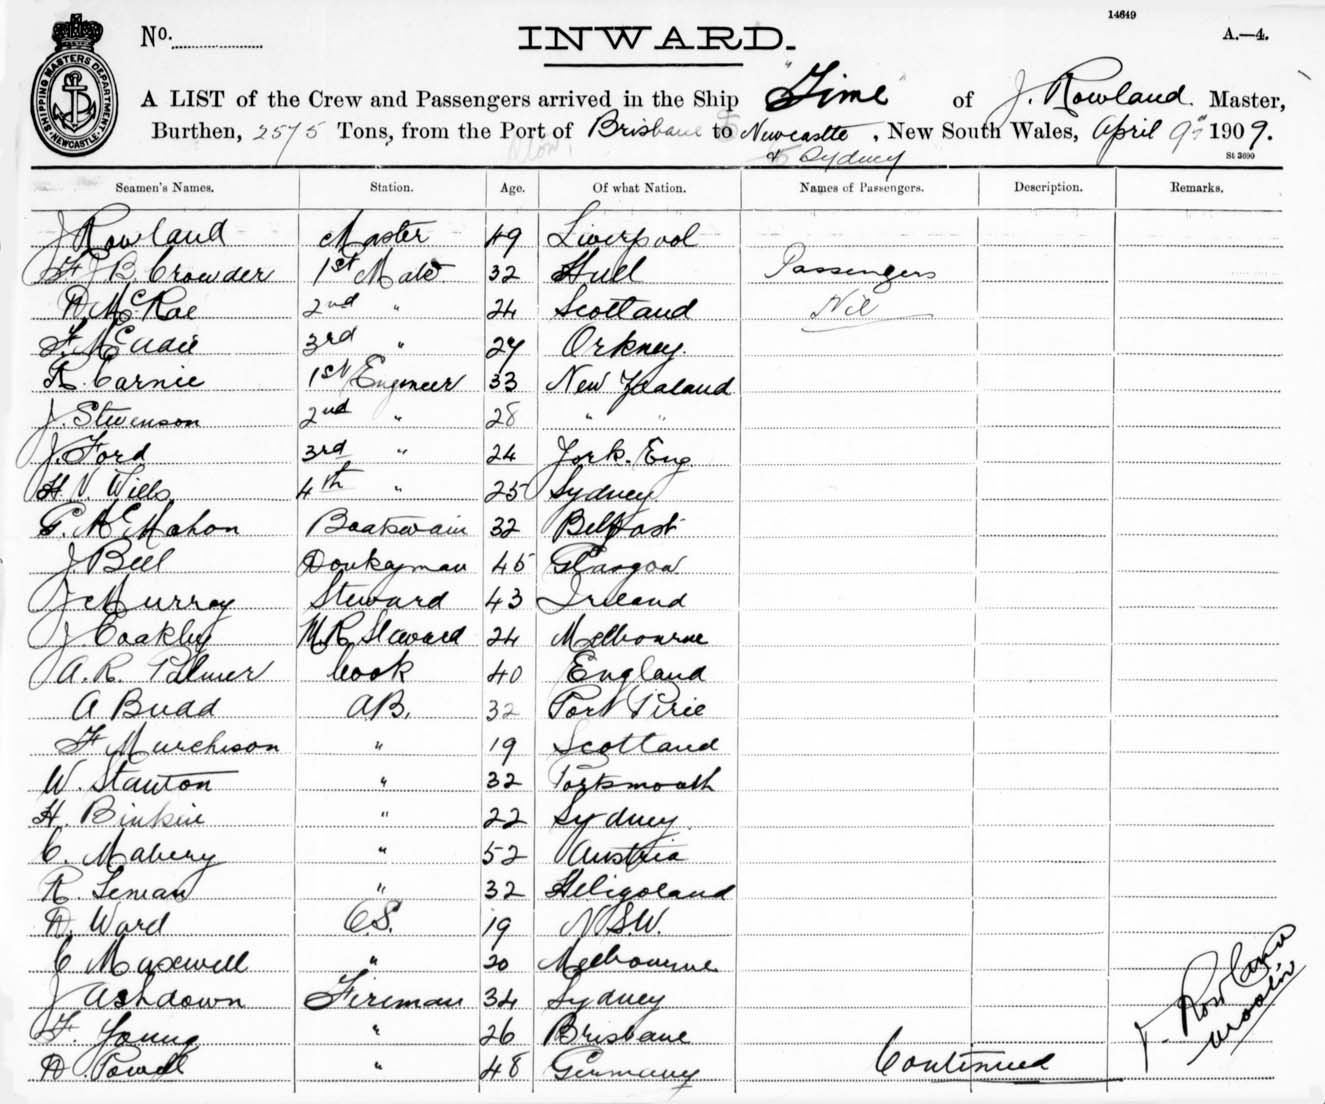 14649
No.
INWARD.
A.—4.
SHIPPING MASTERS DEPARTMENT NEWCASTLE
A LIST of the Crew and Passengers arrived in the Ship "Time" of J. Rowland. Master,
Burthen, 2575 Tons, from the Port of Brisbane to Newcastle, New South Wales, April 9th 1909.
to Sydney
St 3690
Seamen's Names. Station. Age. Of what Nation. Names of Passengers. Description. Remarks.
J Rowland Master 49 Liverpool
F J B Crowder 1st Mate 32 Hull Passengers
D McRae 2nd " 24 Scotland Nil
3rd " 27 Orkney.
R. Carnie 1st Engineer 33 New Zealand
J. Stevenson 2nd " 28 " "
J. Ford 3rd " 24 York. Eng.
H. V. Wills 4th " 25 Sydney
G. McMahon Boatswain 32 Belfast
J. Bell Donkeyman 45 Glasgow
J Murray Steward 43 Ireland
J Coakley M.R. Steward 24 Melbourne
A. R. Palmer Cook 40 England
A Budd A.B. 32 Port Pirie
F Murchison " 19 Scotland
W. Stanton " 32 Portsmouth
H. Binkin " 22 Sydney
C. Mabery " 52 Austria
R. Leman " 32 Heligoland
D. Ward O.S. 19 N.S.W.
C Maxwell " 20 Melbourne
J Ashdown Fireman 34 Sydney
F. Young " 26 Brisbane
D. Powell " 48 Germany
Continued
J. Rowland